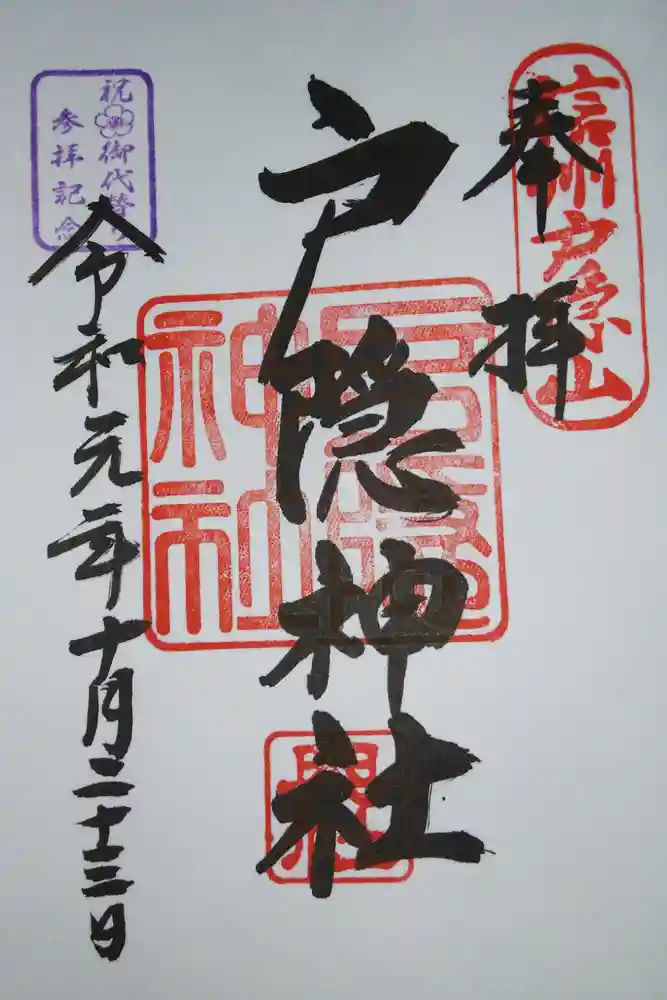 奉拝
信州戸隠山
戸隠神社
戸隠
神社
令和元年十月二十三日
祝御代替り
参拝記念